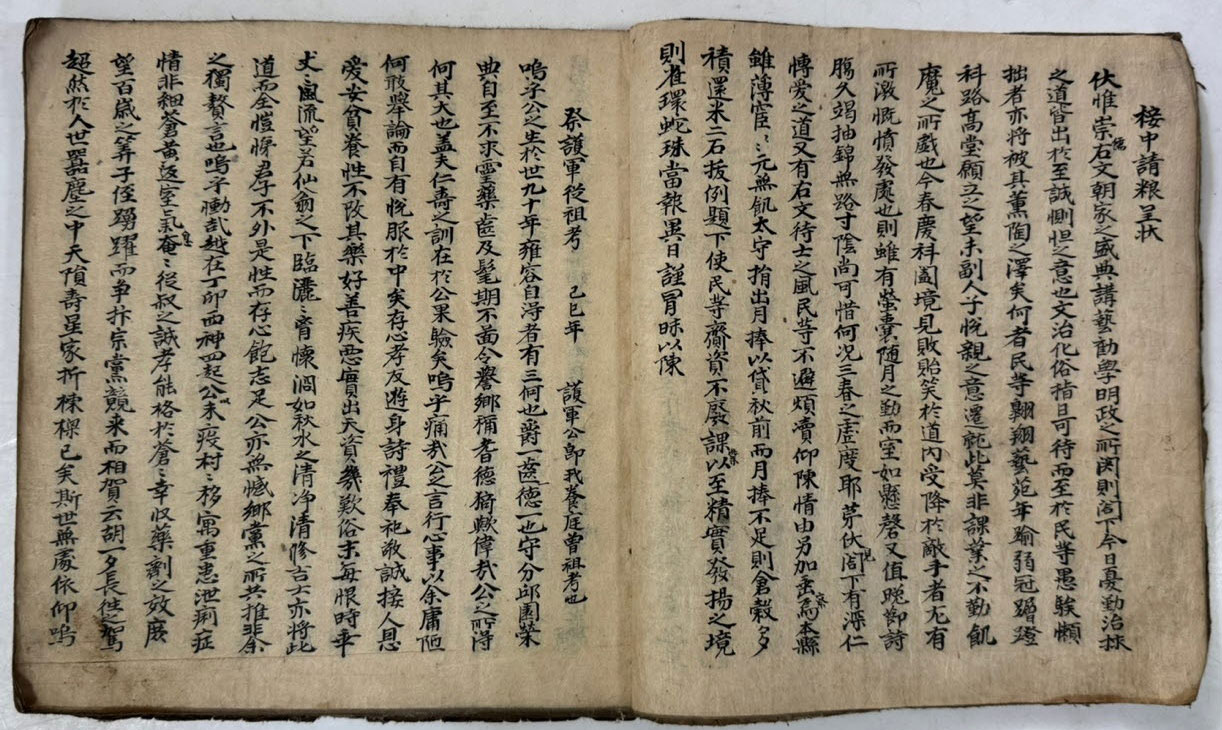 接中請粮呈狀
伏惟崇右文朝家之盛典講藝勸學明政之所関則閤下今日憂勤治抹
之道皆出於至誠惻怛之意也文治化俗指日可待而至於民等愚騃懶
拙者亦將被其薰陶之澤矣何者民等翺翔藝苑年踰弱冠蹭蹬
科路高堂願立之望未副人子悅親之意遷就此莫非課業之不勤飢
魔之所戲也今春慶科闔境見敗貽笑於道內受降於敵手者尤有
所激慨憤發處也則雖有螢囊随月之勤而室如懸磬又值晩節詩
膓久竭抽錦無路寸陰尚可惜何況三春之虛度耶茅伏閤下有深仁
愽愛之道又有右文待士之風民等不避煩瀆仰陳情由另加垂
雖薄宦元無飢太守捐出月捧以貸秋前而月捧不足則倉穀多
積還米二石拔例題下使民等齋資不廢課以至精實發揚之境
則雀環蛇珠當報異日謹冒昧以陳
祭護軍從祖考 己巳年 護軍公卽我養庭曾祖考也
嗚乎公之生於世九十年雍容自得者有三何也爵一齒德一也守分邱園榮
典自至不求靈藥齒及髦期不啚令譽鄉稱耆德猗歟偉哉公之所得
何其大也盖夫仁壽之訓在於公果驗矣嗚乎痛哉公之言行心事以余庸陋
何敢擧論而自有悅服於中矣存心孝友遊身詩禮奉祀敬誠接人恩
愛安貧養性不改其樂好善疾惡實出天資幾歎俗末每恨時幸
丈〻風流望若仙翁之下臨灑〻胷懷濶如秋水之清净清修吉士亦將此
道而全愷悌君子不外是性而存心飽志足公亦無憾鄉黨之所共推非余
之獨贅言也嗚乎慟哉越在丁卯西神四起公未疫村〻移寓重患泄痢症
情非細蒼黄返室氣奄〻從叔之誠孝能格於蒼〻幸収藥劑之效庶
望百歲之筭子侄踴躍而爭抃宗黨競來而相賀云胡一夕長徃之駕
超然於人世嚣塵之中天隕壽星家折棟樑已矣斯世無處依仰嗚